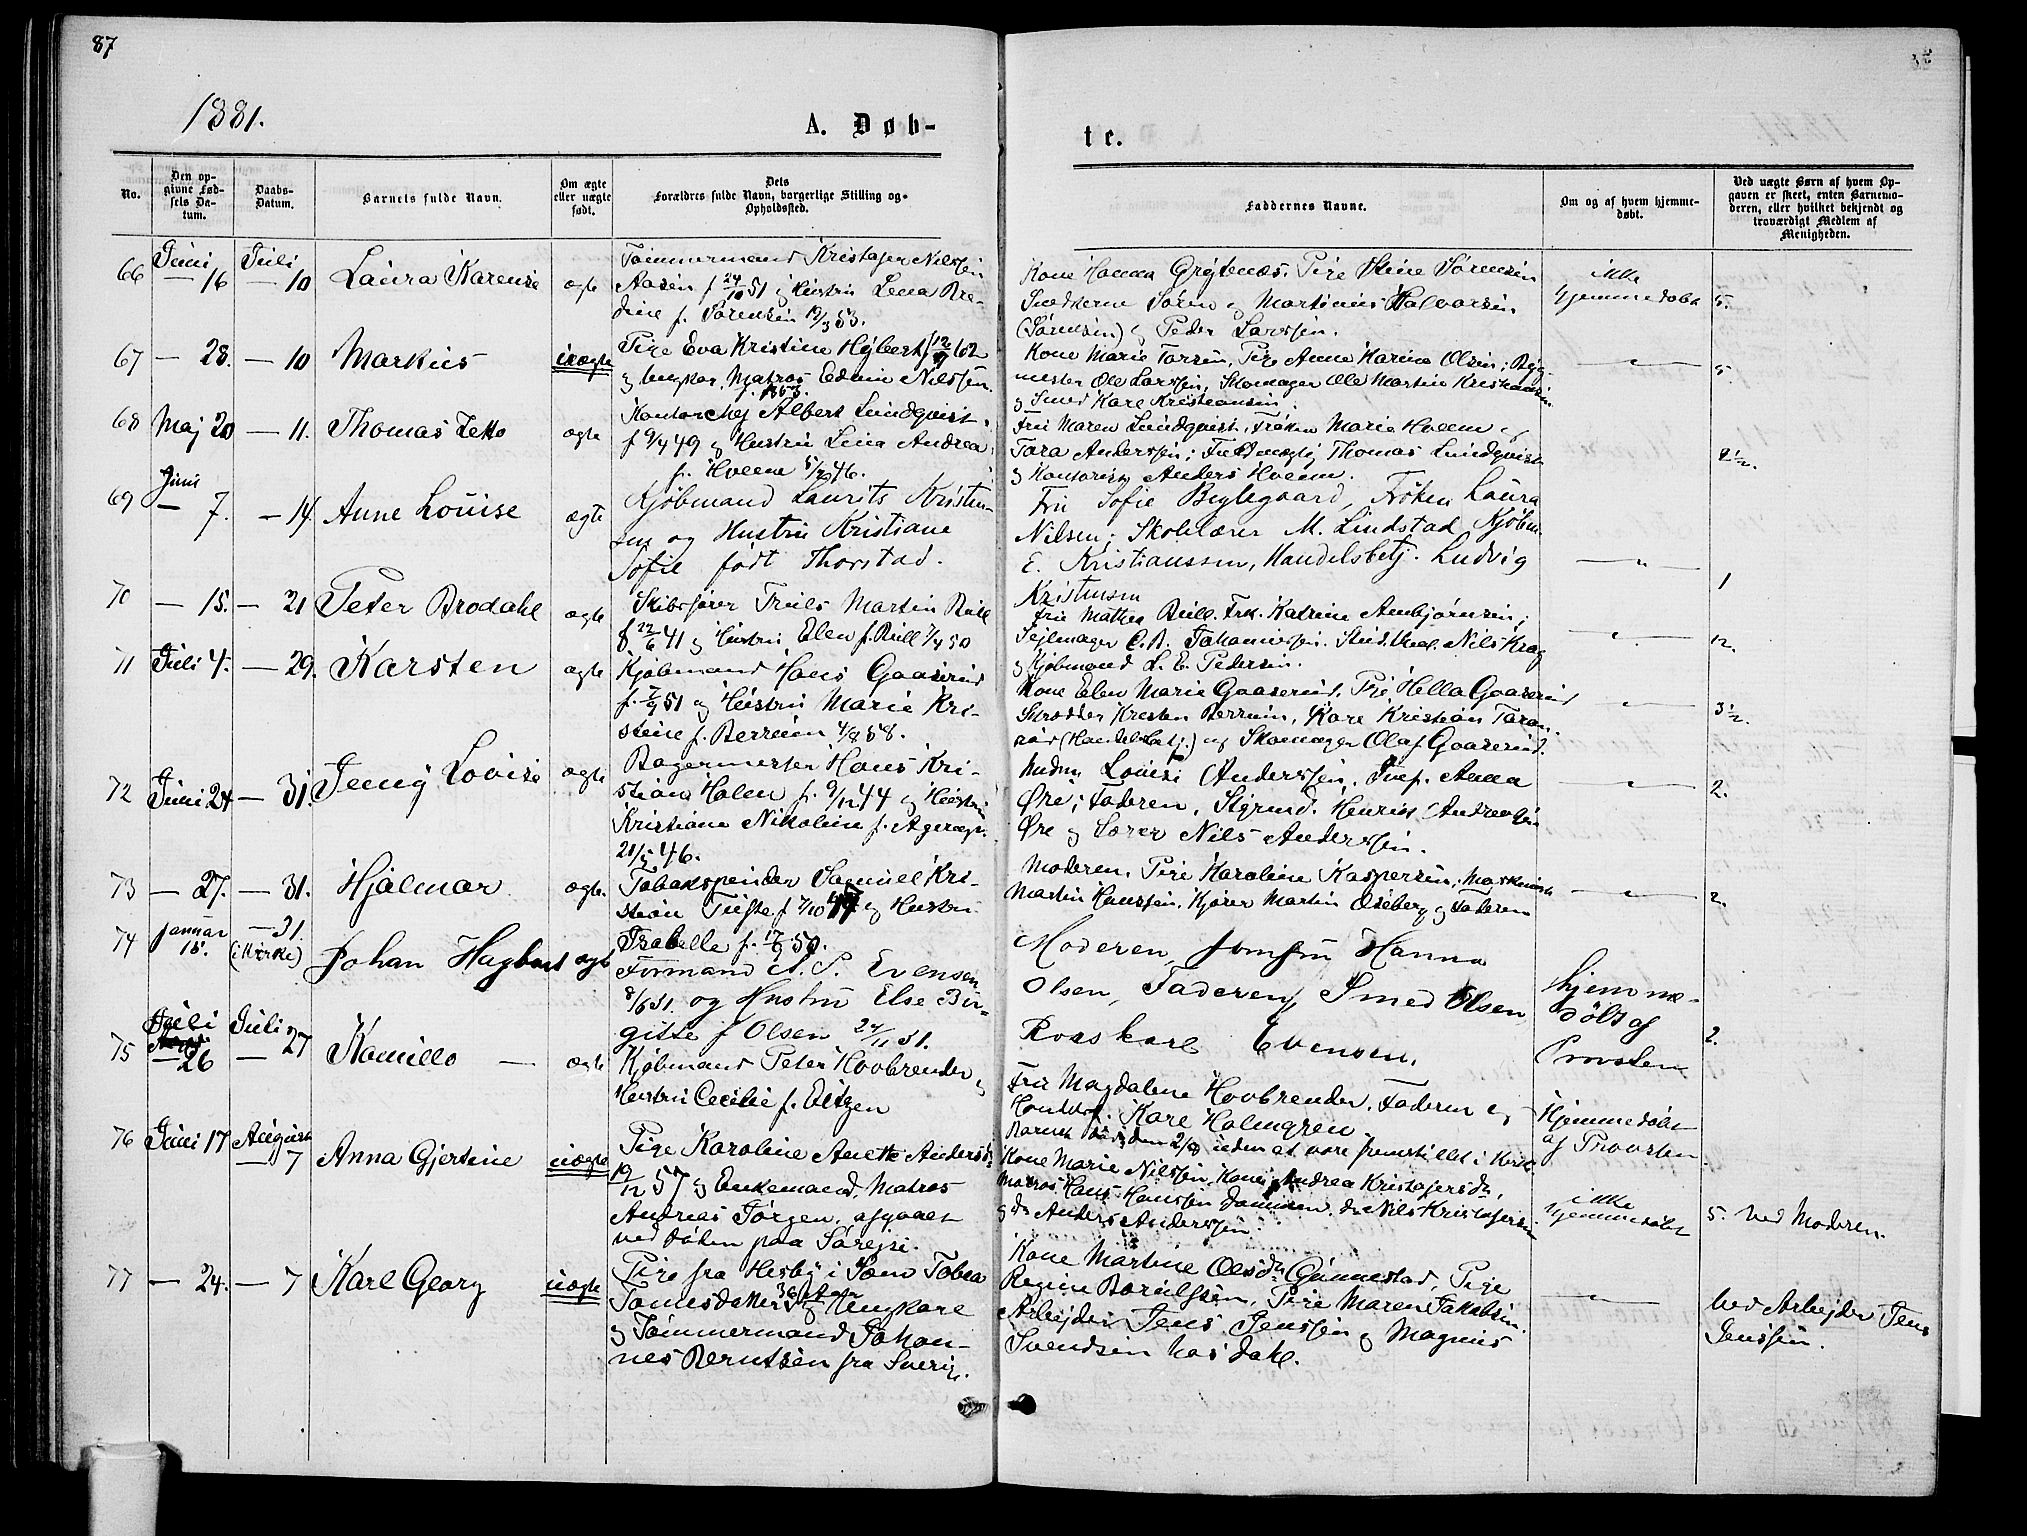 87
1881.
A. Døb-
te.
No.
Den op-
givne Fød-
sels Da-
tum.
Daabs-
Datum.
Barnets fulde Navn.
Om ægte
eller uægte
født.
Dets
Forældres fulde Navn, borgerlige Stilling og
Opholdssted.
Faddernes Navne.
Om og af hvem hjemme-
døbt.
Ved uægte Børn af hvem Op-
gaven er skeet, enten Barnemo-
deren, eller hvilket bekjendt og
troværdigt Medlem af
Menigheden.
66 Juni 16 Juli 10 Laura Karense ægte
Tømmermand Kristofer Nilssen
Aasen f 24/10 51 og Hustru Lena Bre-
dine f. Sørensen 19/3 53.
Kone Hanna Grytenæs. Pige Stine Sørensen
Snedkerne Søren og Martinius Halvorsen
(Sørensen) og Peder Larssen.
ikke
hjemmedøbt
5.
67 — 28. — 10 Markus uægte
Pige Eva Kristine Hybert f 12/9 62
og Ungkar, Matros Edvin Nilssen
Kone Marie Larsen, Pige Anne Karine Olsen; Byg-
mester Ole Larssen, Skomager Ole Martin Kristiansen
og Smed Karl Kristiansen.
5.
68 Maj 20 — 11. Thomas Zetto ægte
Kontorchef Albert Lundqvist
f 9/4 49 og Hustru Lina Andrea
f. Hveem 5/12 46.
Fru Maren Lundqvist, Frøken Marie Hveem og
Tara Anderssen; Fuldmægtig Thomas Lundqvist
og Kontorist Anders Hveem.
2 1/2.
69 Juni 7. — 14. Anne Louise ægte
Kjøbmand Laurits Kristen-
sen og Hustru Kristiane
Sofie født Thorstad.
Fru Sofie Buglegaard, Frøken Laura
Nilsen; Skolelærer M. Lindstad, Kjøbm.
E. Kristianssen, Handelsbetj. Ludvig
Kristensen
1
70 — 15. — 21 Peter Brodahl ægte
Skibsfører Truls Martin Bull
f 22/6 41 og Hustru Elen f. Bull 7/4 50
Fru Mathea Bull. Frk. Katrine Anbjørnsen;
Sejlmager C. A. Johannessen. Stud. Nils Krag
og Kjøbmand L. E. Pedersen.
12.
71 Juli 4. — 29. Karsten ægte
Kjøbmand Hans Gaaserud
f. 7/9 51 og Hustru Marie Kri-
stine f. Berruum 4/8 58.
Kone Elen Marie Gaaserud. Pige Hella Gaaserud
Skrædder Kresten Berruum, Kare Kristian Taran-
rød (Handelsbetj.) og Skomager Olaf Gaaserud.
3 1/2.
72 Juni 24 — 31. Jenny Lovise ægte
Bagermester Hans Kri-
stian Holen f. 9/12 44 og Hustru
Kristiane Nikoline f.
21/5 46.
Louise Anderssen, Anna
Øre; Faderen, Sigrund. Henrik Andreassen
Øre og Lærer Nils Anderssen.
2.
73 — 27. — 31. Hjalmar ægte.
Tobakspinder Samuel Kri-
stian Tufte f 7/10 og Hustru
Isabelle f. 17/9 50.
Moderen, Pige Karoline Kaspersen; Maskinist
Martin Hanssen, Kjører Martin Oseberg og Faderen
2.
74 Januar 15. — 31. (i Kirke) Johan Hagbart ægte
Formand A. P. Evensen
8/6 51. og Hustru Else Bir-
gitte f Olsen 24/11 51.
Moderen, Jomfru Hanna
Olsen, Faderen, Smed Olsen,
Roaskarl Evensen.
hjemme-
døbt af
Provsten
2.
75 Juli 26 Juli 27 Kamillo — ægte
Kjøbmand Peter Hovbrender og
Hustru Cecilie f. Eitzen
Fru Magdalene Hovbrender. Faderen og
Handelsf. Kare Holmgren.
Barnet døde den 2/8 uden at være fremstillet i Kirke
Hjemmedøbt
af Provsten.
76 Juni 17 August 7 Anna Gjertine uægte
Pige Karoline Anette Andersdr
19/12 57 og Enkemand, Matros
Andreas Jørgen, afgaaet
ved Døden paa Sørejse.
Kone Marie Nilssen, Kone Andrea Kristofersdr,
Matros Hans Hanssen Dammen, do Nils Kristofersen
og do Anders Anderssen
ikke
hjemmedøbt
5. Ved Moderen.
77 — 24. — 7 Karl Georg uægte
Pige fra Hesby i Sæm Tobea
Tomesdatter 36 Aar
og Ungkarl
og Tømmermand Johan-
nes Berntsen fra Sverig.
Kone Martine Olsdr Gunnestad, Pige
Regine Borulfsen, Pige Maren Jakobsen.
Arbejder Jens Jenssen og Magnus
Svendsen hos dahl.
Ved Arbejder Jens
Jenssen.